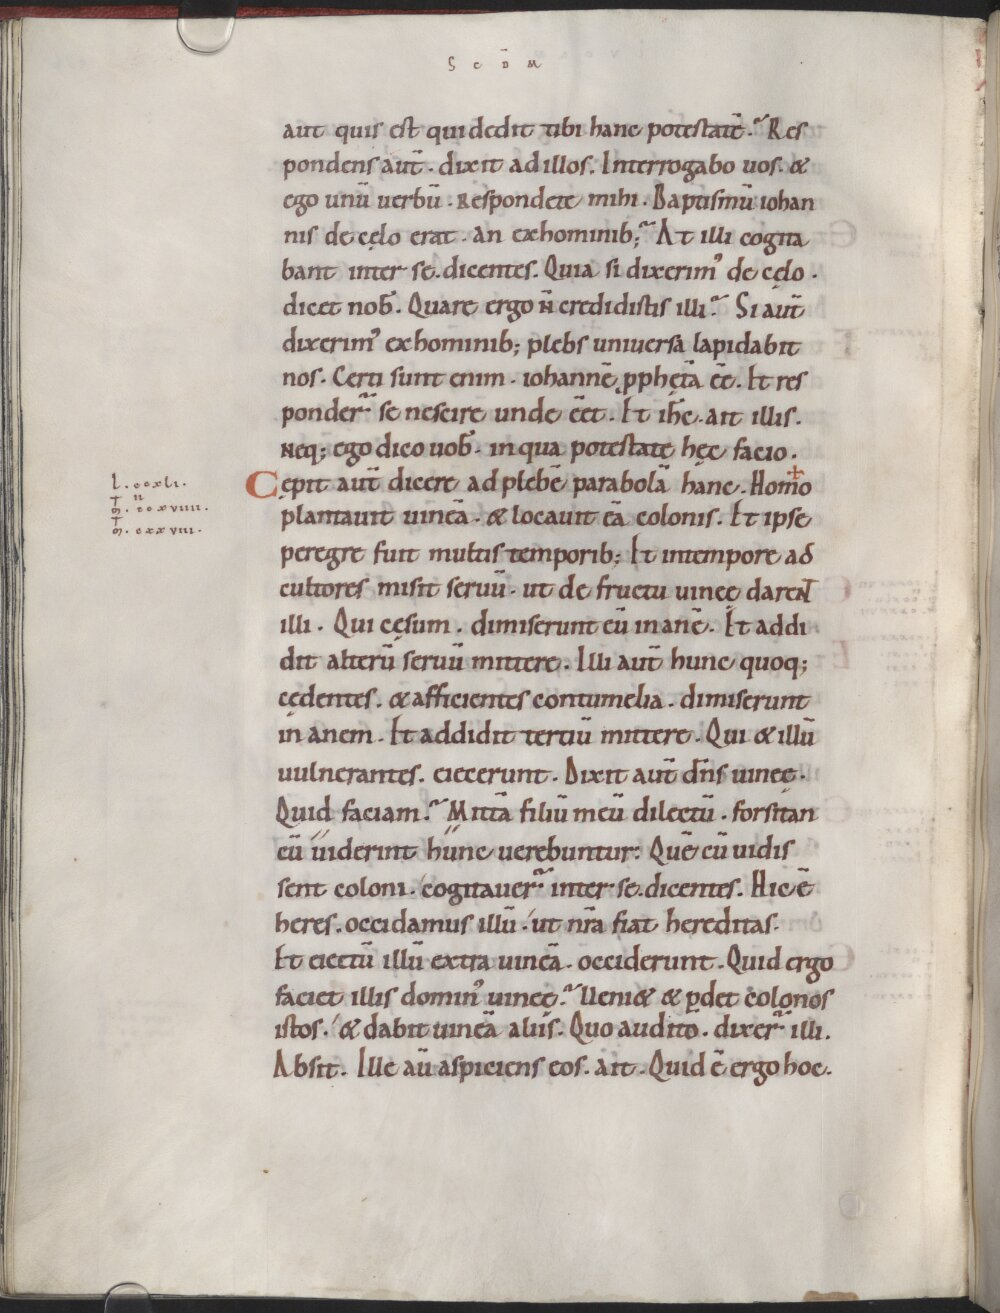 S C D̄ M
aut quis est qui dedit tibi hanc potestatē. Res
pondens aut̄. dixit ad illos. Interrogabo uos. &
ego unū uerbū. Respondete mihi. Baptismū iohan
nis de cęlo erat. an ex hominib; At illi cogita
bant inter se. dicentes. Quia si dixerim᾿ de cęlo.
dicet nob̄. Quare ergo n̄ credidistis illi? Si aut̄
dixerim᾿ ex hominib; plebs uniuersa lapidabit
nos. Certi sunt enim. iohannē ꝓphetā eē. Et res
ponder̄ se nescire unde eēt. Et ih̄c. ait illis.
Neq; ego dico uob̄. in qua potestate hęc facio.
Cępit aut̄ dicere ad plebē parabolā hanc. Homo
l. ccxli.
m̄. ii
m̄. ccxviiii.
m̄. cxxviii.
plantauit uineā. & locauit eā colonis. Et ipse
peregre fuit multis temporib; Et in tempore ad
cultores misit seruū. ut de fructu uineę darent
illi. Qui cęsum. dimiserunt eū inanē. Et addi
dit alterū seruū mittere. Illi aut̄ hunc quoq;
cędentes. & afficientes contumelia. dimiserunt
inanem. Et addidit tertiū mittere. Qui & illū
uulnerantes. eiecerunt. Dixit aut̄ dn̄s uineę.
Quid faciam? Mittā filiū meū dilectū. forsitan
cū uiderint hunc uerebuntur: Quē cū uidis
sent coloni. cogitauer̄ inter se. dicentes. Hic ē
heres. occidamus illū. ut nr̄a fiat hereditas.
Et eiectū illū extra uineā. occiderunt. Quid ergo
faciet illis domin᾿ uineę? Ueni& & ꝑdet colonos
istos. & dabit uineā aliis. Quo audito. dixer̄ illi.
Absit. Ille aū aspiciens eos. ait. Quid ē ergo hoc.